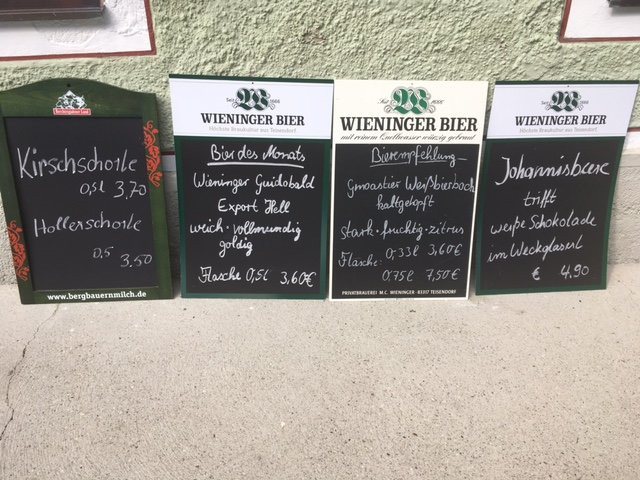 Kirschschorle
0,5l 3,70
Hollerschorle
0,5
3.50
www.bergbauernmilch.de
Seit 1666
WIENINGER BIER
Höchste Braukultur aus Teisendorf
Bier des Monats
Wieninger Guidobald
Export Hell
weich · vollmundig
goldig
Flasche 0,5l 3,60€
Seit 1666
WIENINGER BIER
mit reinem Quellwasser würzig gebraut
Bierempfehlung
Weißbierbock
kaltgehopft
stark · fruchtig · zitrus
Flasche: 0,33l 3,60€
0,75l 7,50€
PRIVATBRAUEREI M.C. WIENINGER · 83317 TEISENDORF
Seit 1666
WIENINGER BIER
Höchste Braukultur aus Teisendorf
Johannisbeere
trifft
weiße Schokolade
im Weckglaserl
€ 4,90